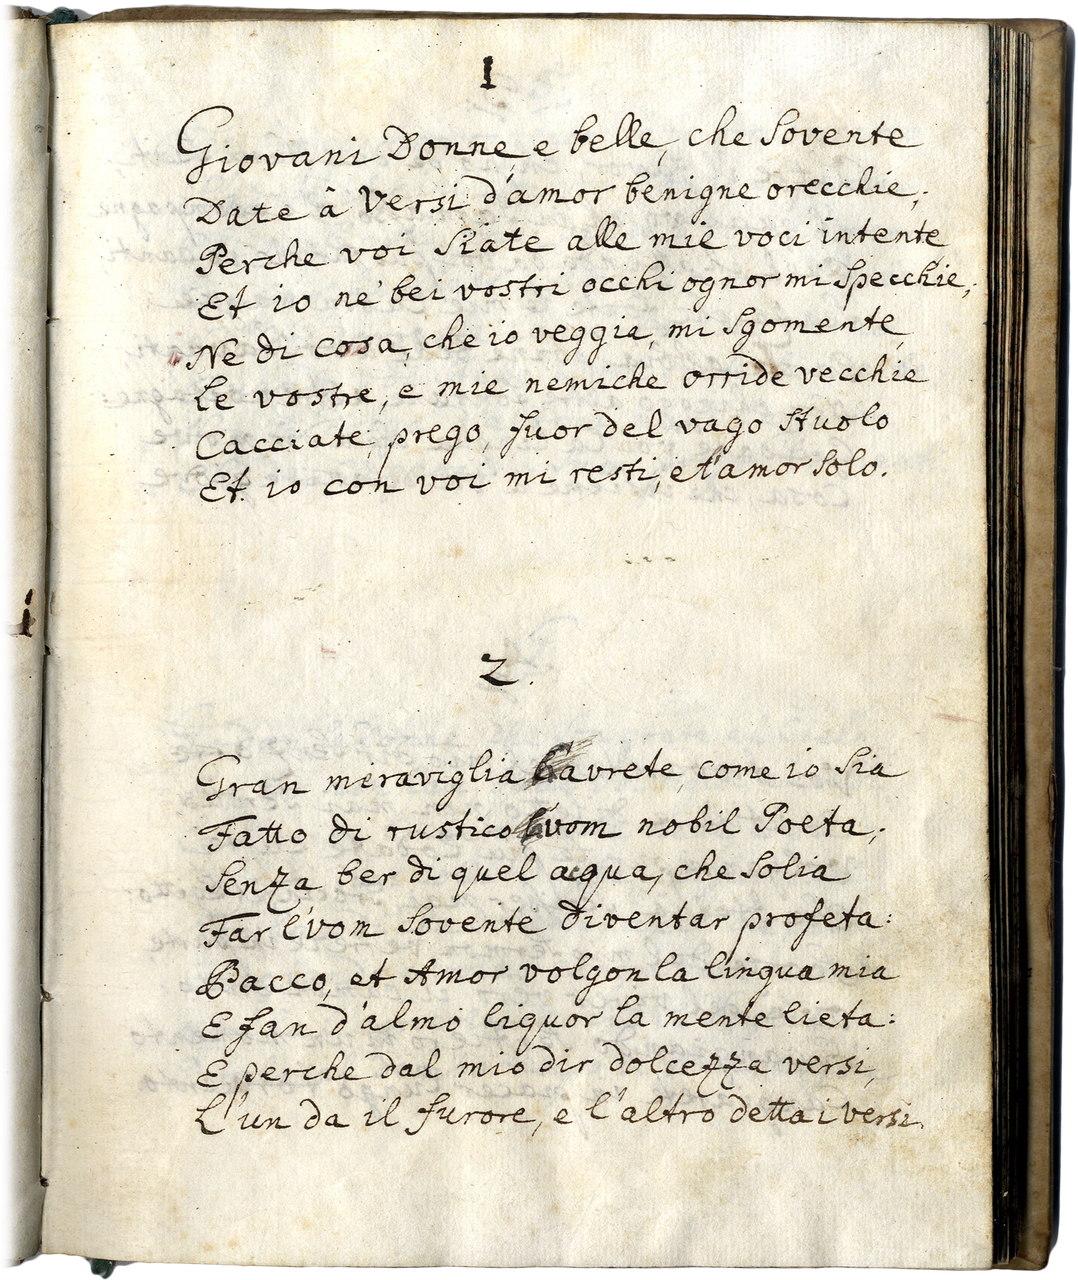 1
Giovani Donne, e belle, che sovente
Date à versi d'amor benigne orecchie;
Perche voi siate alle mie voci intente
Et io ne' bei vostri occhi ognor mi specchie;
Ne di cosa, che io veggia, mi sgomente,
Le vostre, e mie nemiche orride vecchie
Cacciate, prego, fuor del vago stuolo
Et io con voi mi resti, et amor solo.
2.
Gran meraviglia havrete, come io sia
Fatto di rustico huom nobil Poeta;
Senza ber di quel acqua, che solia
Far l'vom sovente diventar profeta:
Bacco, et Amor volgon la lingua mia
E fan d'almo liquor la mente lieta:
E perche dal mio dir dolcezza versi,
L'un da il furore, e l'altro detta i versi.